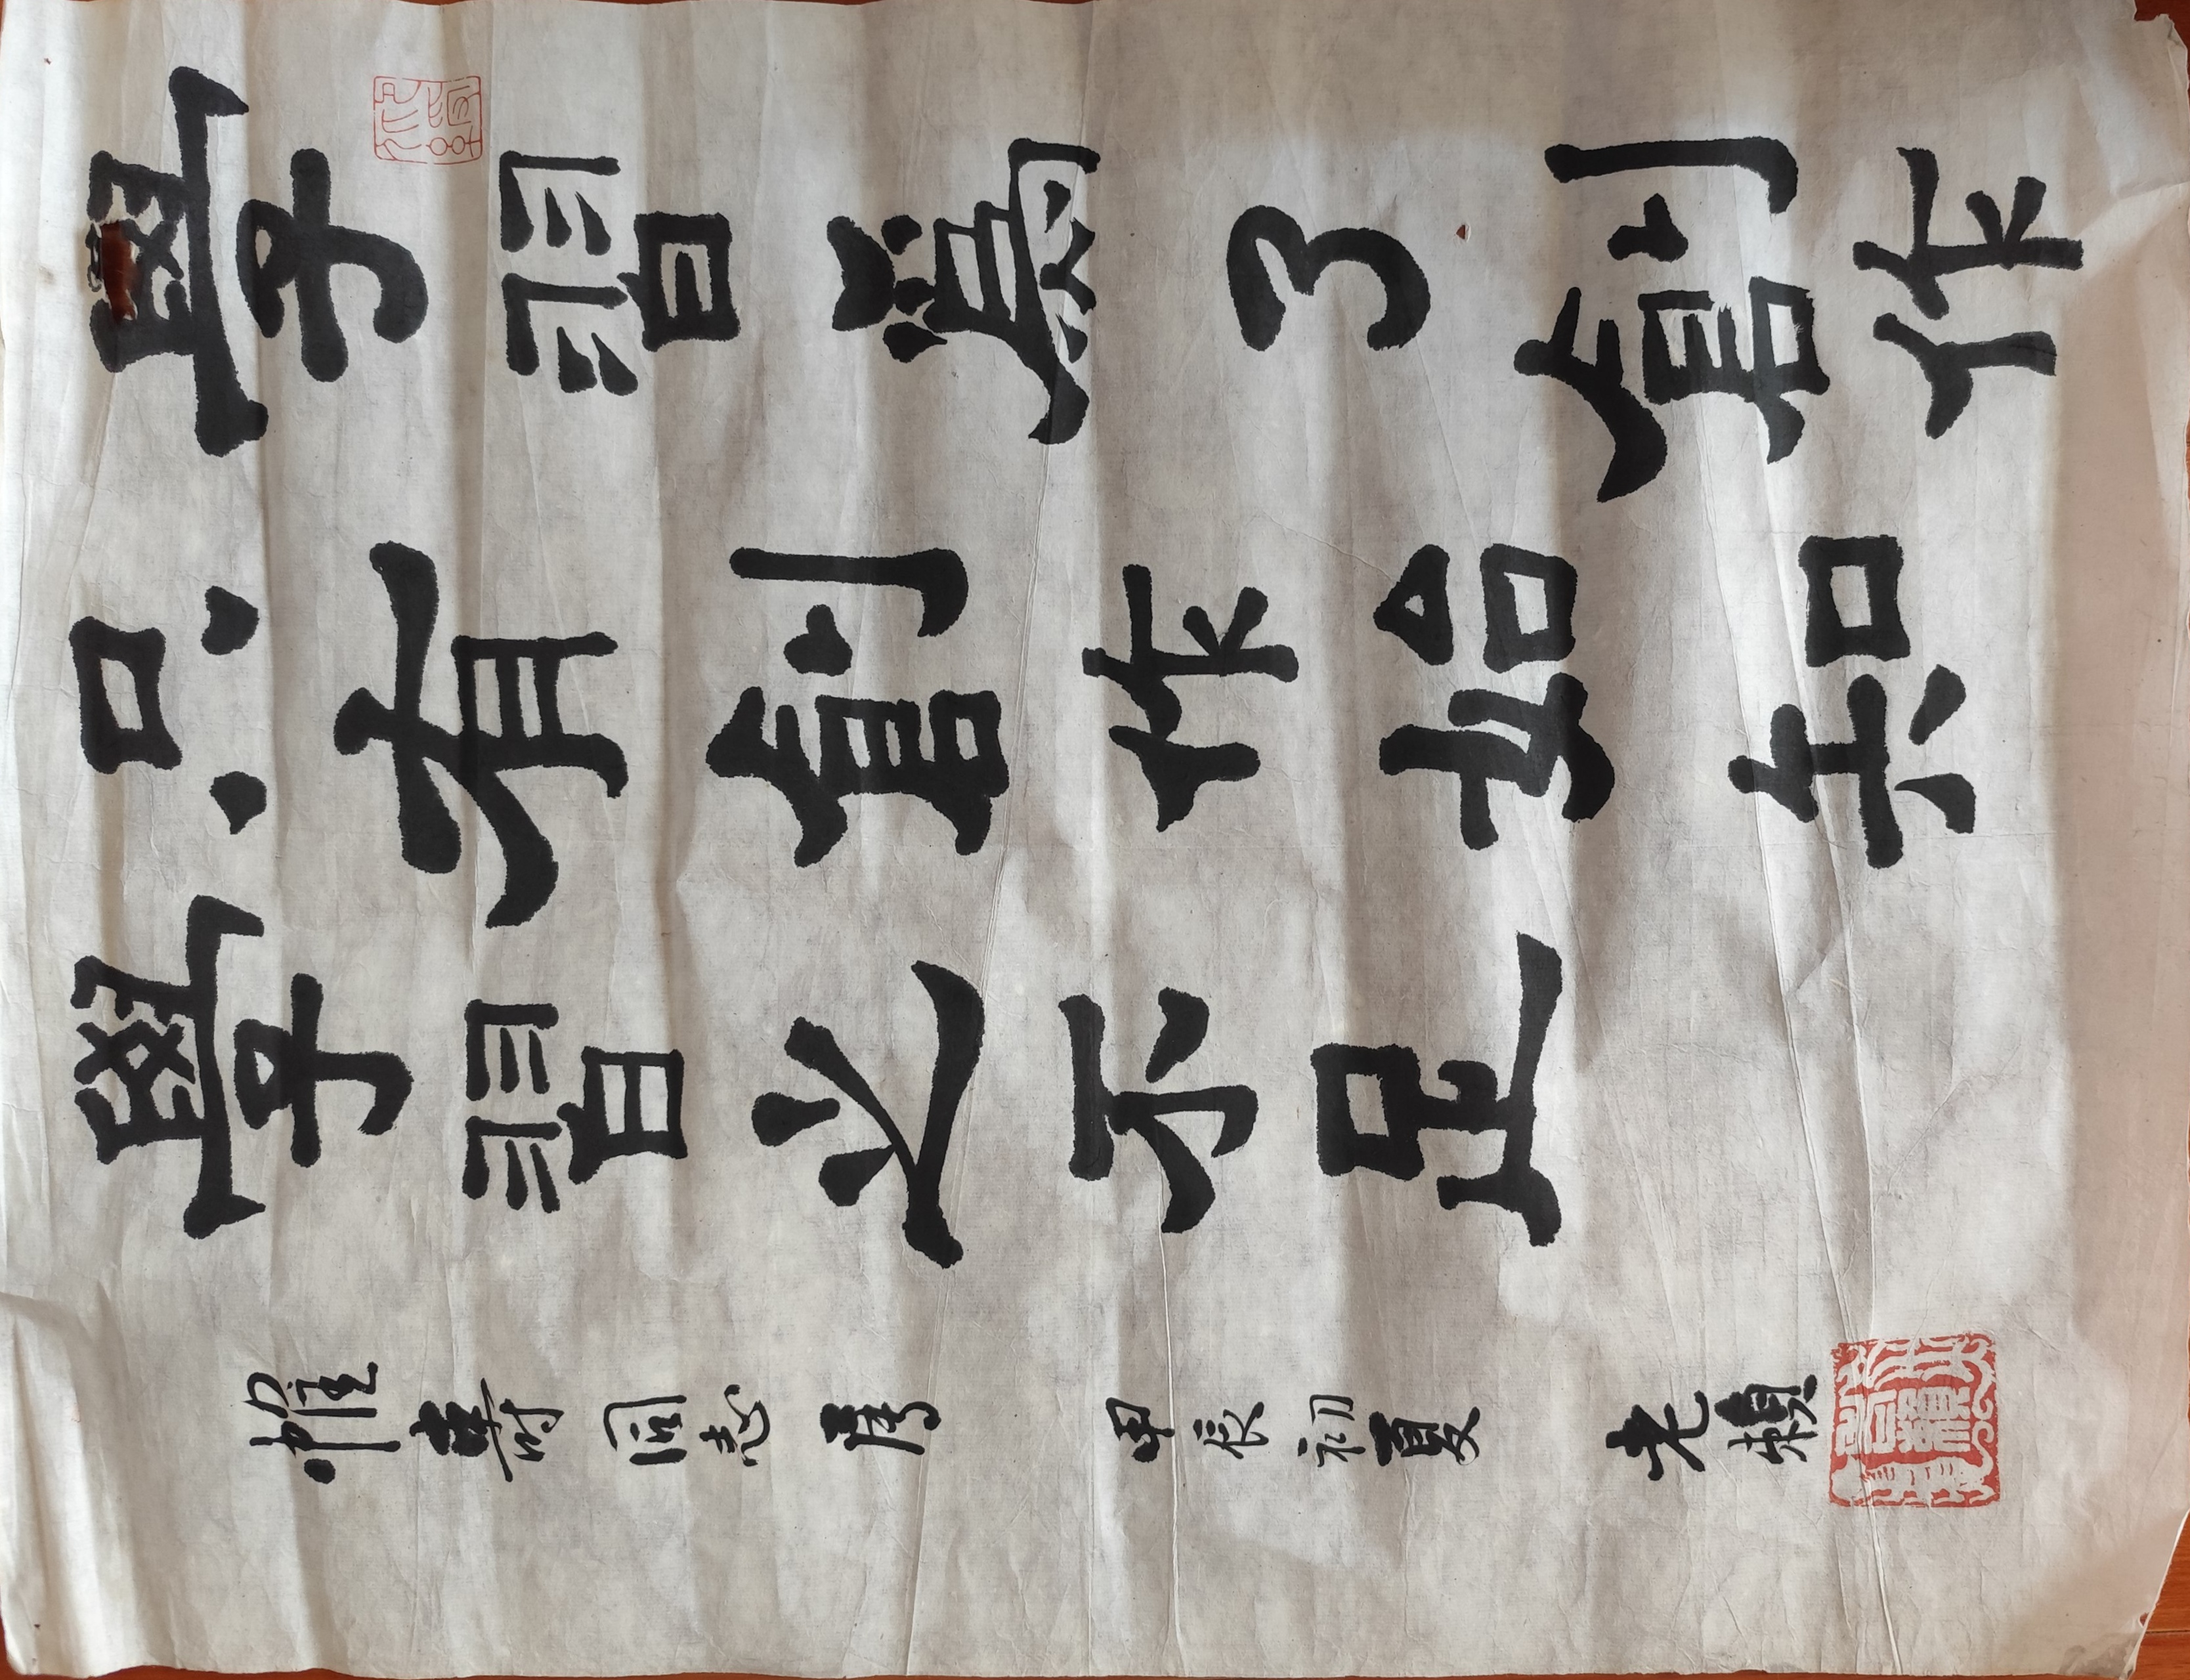 學習爲了創作
只有創作始知
學習之不足
惟壽同志属 甲辰初夏 老賴